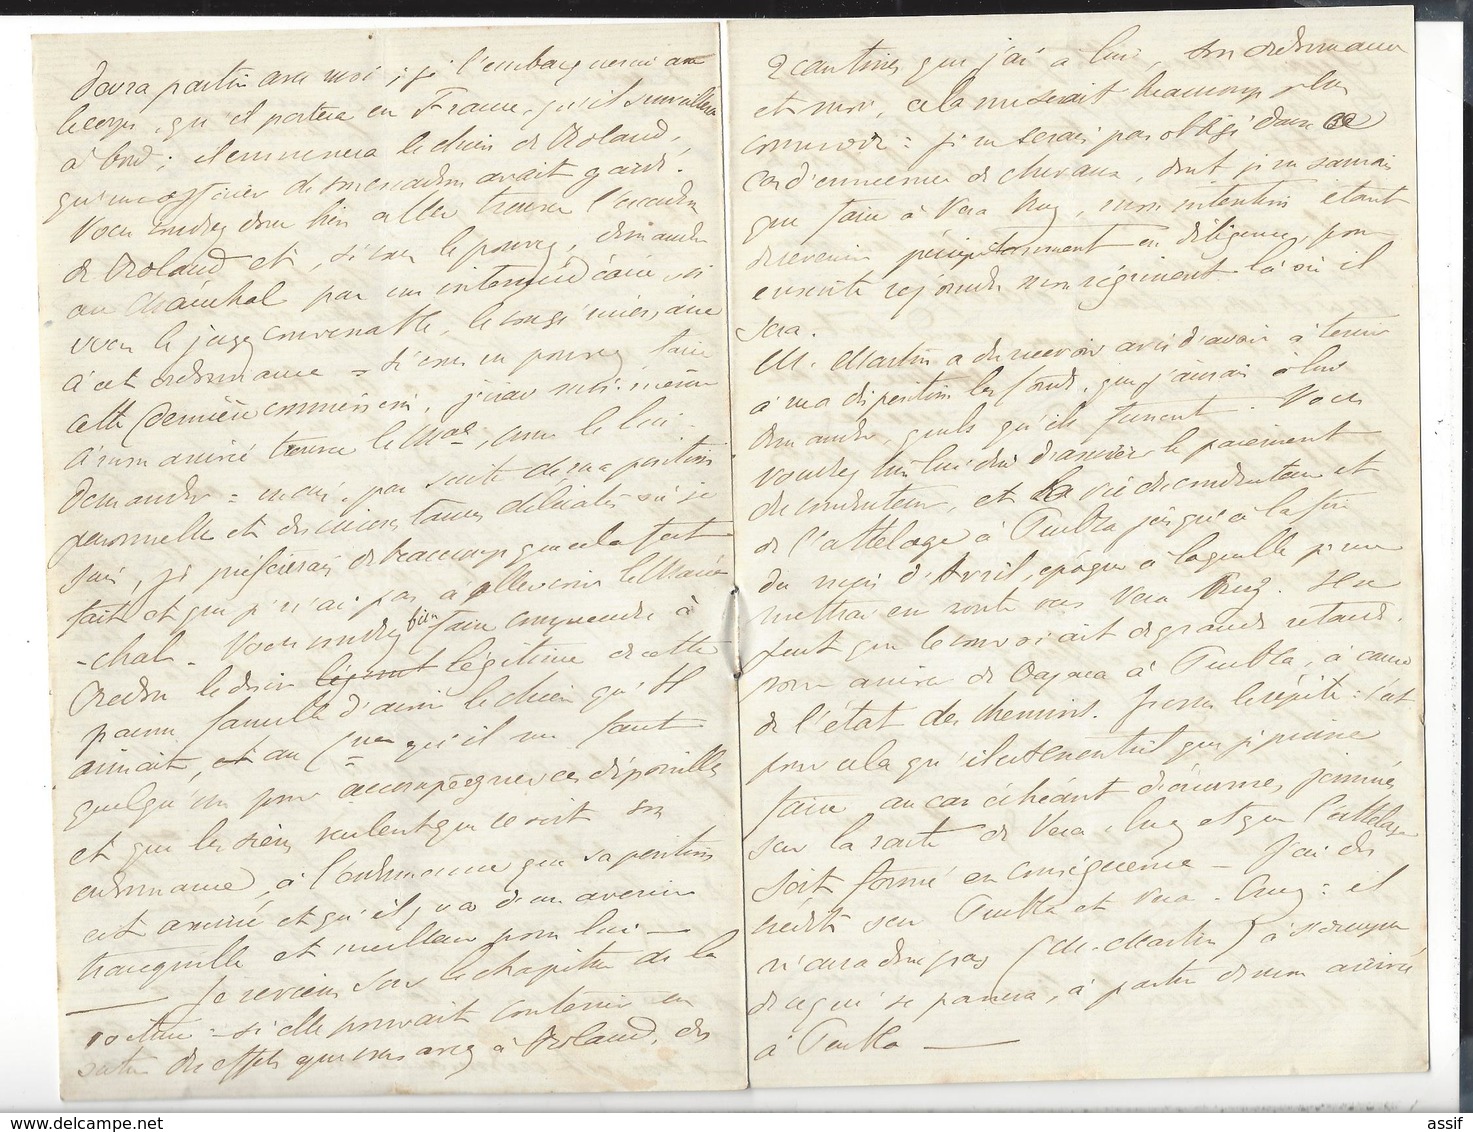 devra partir avec moi ; je l'embarquerai avec
le corps, qu'il portera en France, qu'il surveillera
à bord ; il emmenera le chien de Roland,
qu'un officier de son escadron avait gardé.
Vous voudrez donc bien aller trouver l'escadron
de Roland et, si vous le pouvez, demander
au Maréchal par un intermédiaire, si
vous le jugez convenable, le congé nécessaire
à cet ordonnance = si vous ne pouvez faire
cette dernière commission, j'irai moi-même
à mon arrivée trouver le Mal, pour le lui
demander = mais, par suite de ma position
personnelle et des circonstances délicates où je
suis, je préférerais de beaucoup que cela fut
fait et que je n'ai pas à aller voir le Maré-
-chal - Vous voudrez bien faire comprendre à
Credon le désir légitime de cette
pauvre famille d'avoir le chien qu'il
aimait, et au qu'il me faut
quelqu'un pour accompagner ces dépouilles
et que les siens veulent que ce soit son
ordonnance, à l'ordonnance que sa position
est assurée et qu'il y va d'un avenir
tranquille et meilleur pour lui —
— Je reviens sur le chapitre de la
voiture = si elle pouvait contenir en
outre des effets que vous avez à Roland, des
2 cantines que j'ai à lui, son ordonnance
et moi, cela me serait beaucoup plus
commode = je ne serais pas obligé dans ce
cas d'emmener de chevaux, dont je ne saurais
que faire à Vera Cruz, mon intention étant
de revenir précipitamment en diligence, pour
ensuite rejoindre mon régiment là où il
sera.
M. Martin a du recevoir avis d'avoir à tenir
à ma disposition les fonds, que j'aurais à lui
demander, quels qu'ils fussent. Vous
voudrez bien lui dire d'assurer le paiement
du conducteur, et la vie de conducteur et
de l'attelage à Puebla jusqu'à la fin
du mois d'Avril, époque à laquelle je me
mettrai en route vers Vera Cruz. Il se
peut que le convoi ait de grands retards
pour arriver de Oajaca à Puebla, à cause
de l'état des chemins. Je vous le répète : c'est
pour cela qu'il est essentiel que je puisse
faire au cas échéant d'énormes journées
sur la route de Vera-Cruz et que l'attelage
soit formé en conséquence — J'ai des
crédits sur Puebla et Vera-Cruz : il
n'aura donc pas (M. Martin) à s'occuper
de ce qui se passera, à partir de mon arrivée
à Puebla —
assif